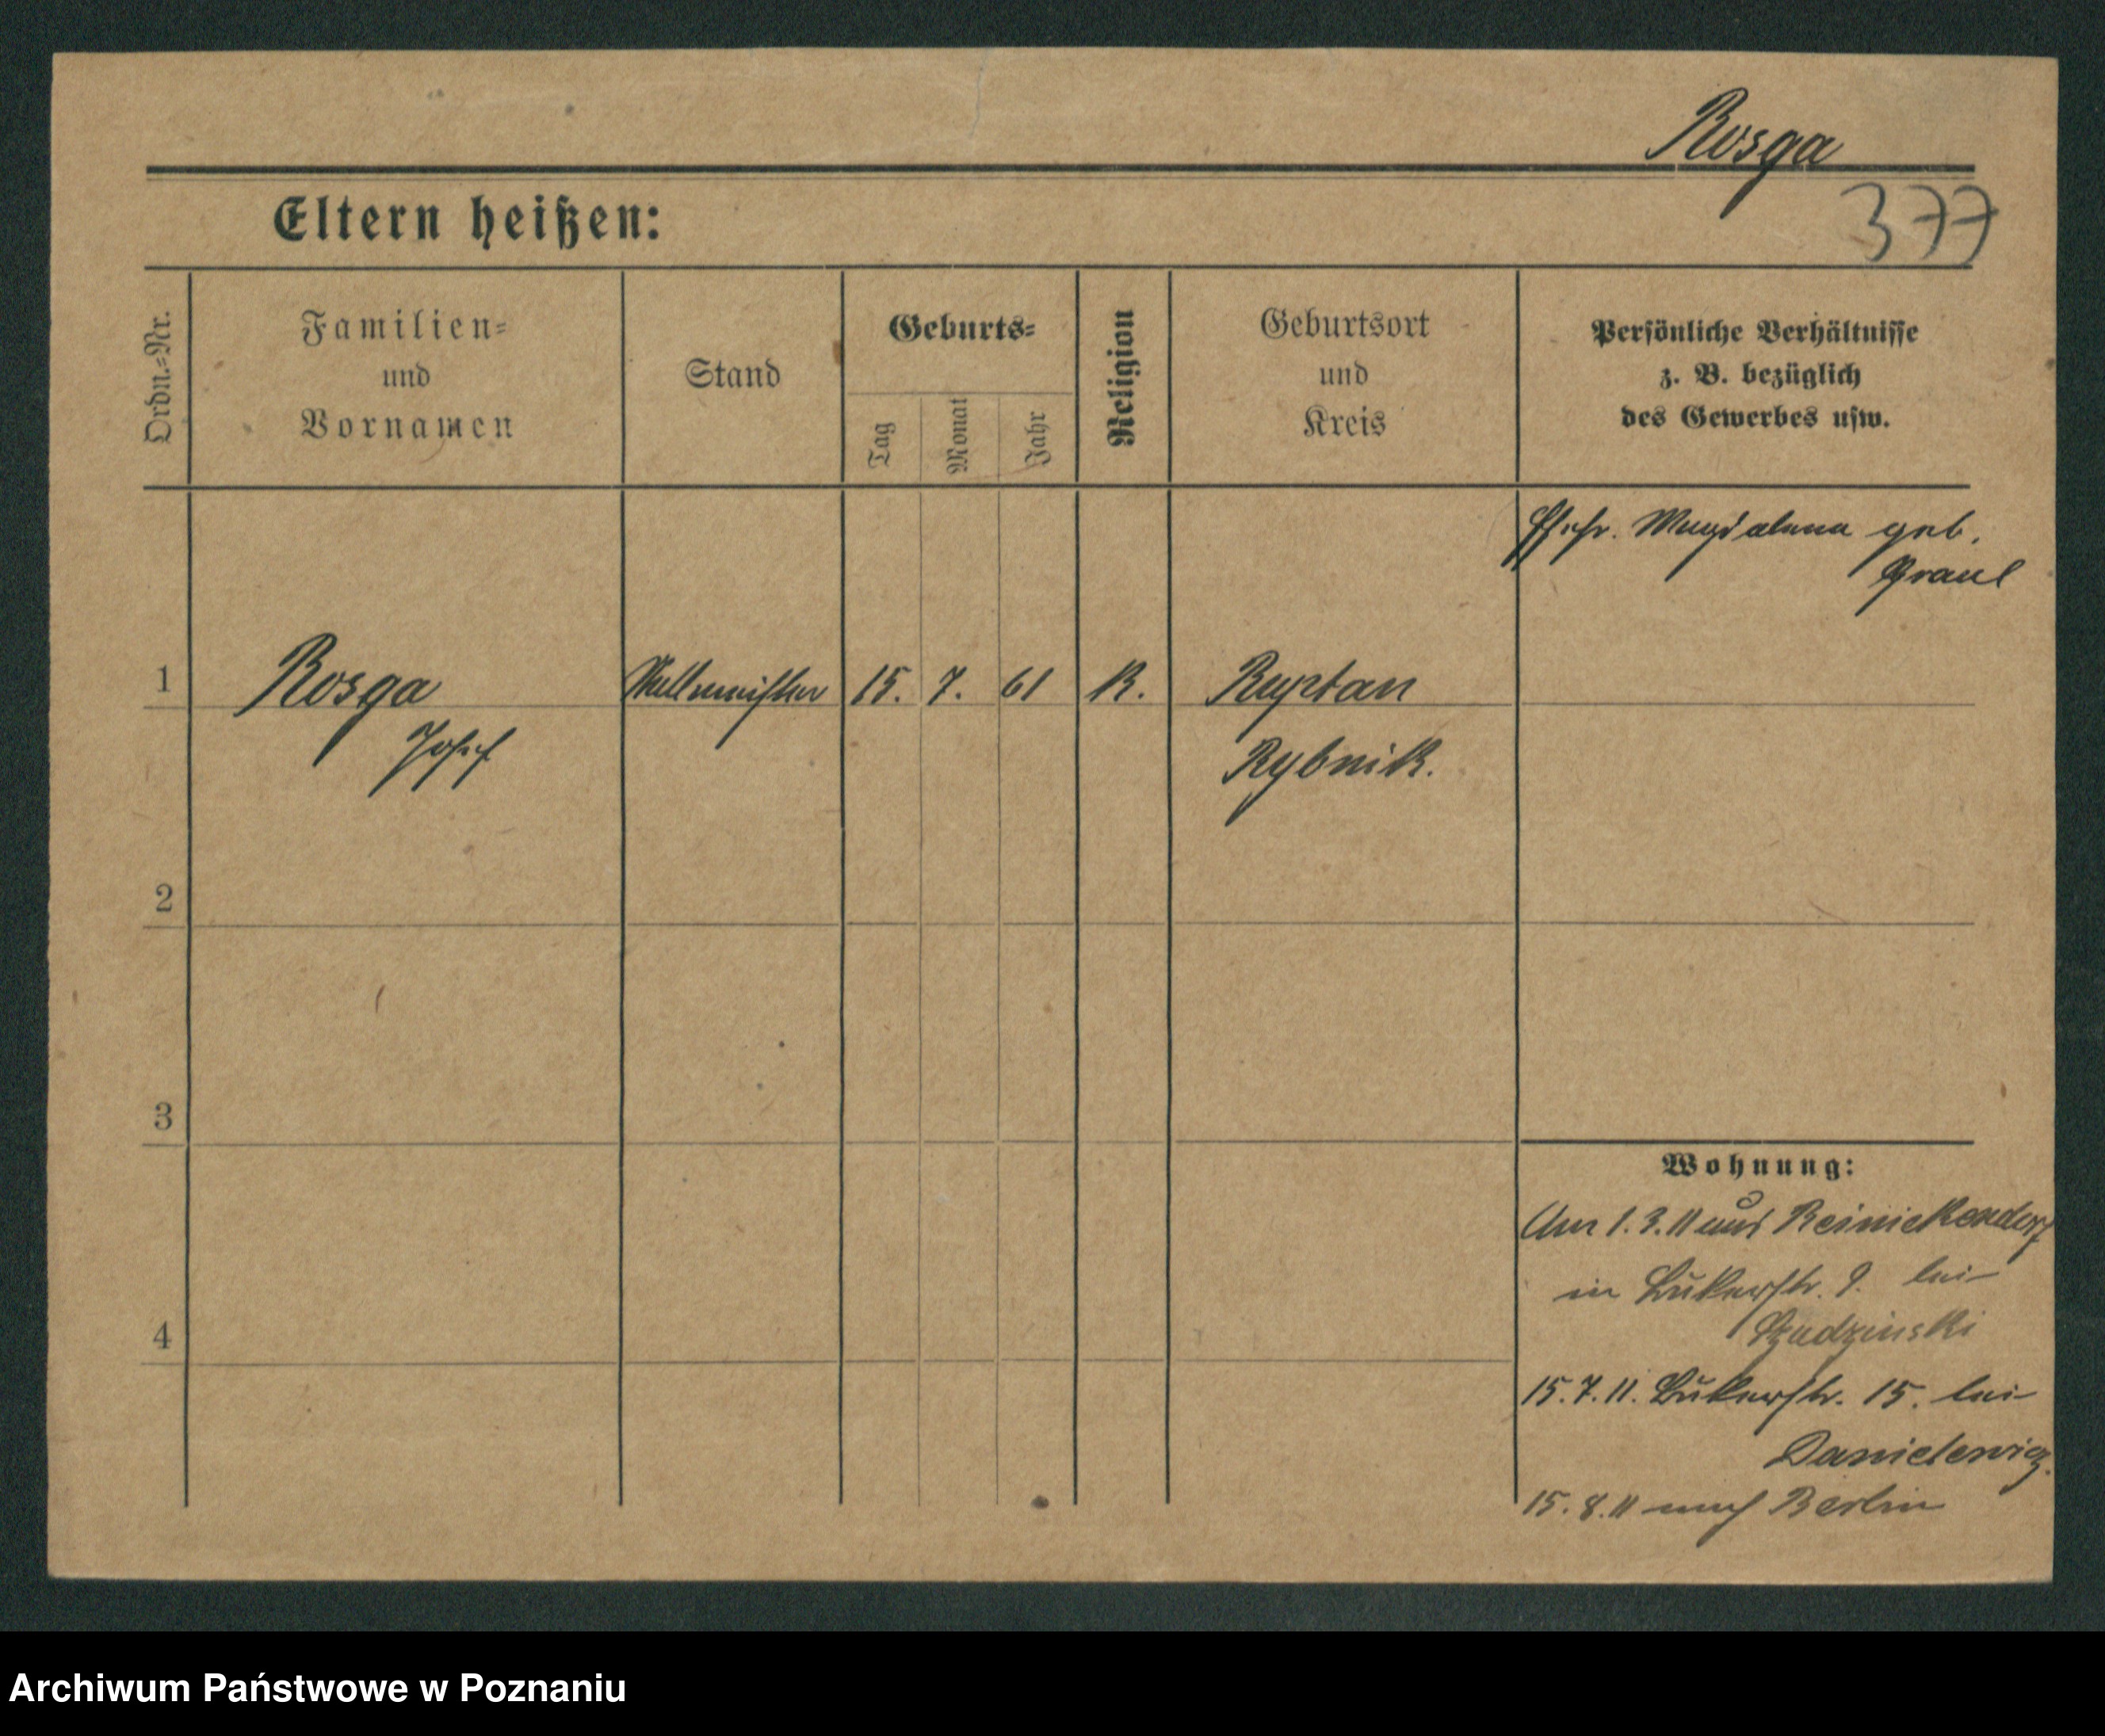 Rosga
377
Eltern heißen:
Ordn.=Nr.
Familien=
und
Vornamen
Stand
Geburts=
Tag
Monat
Jahr
Religion
Geburtsort
und
Kreis
Persönliche Verhältnisse
z. B. bezüglich
des Gewerbes usw.
Ehefr. Magdalena geb.
Graul
1 Rosga 15. 7. 61 K.
Josef
Rybnik.
2
3
4
Wohnung:
1.3.11 aus Reinickendorf
in Bukerstr. 9. bei
15.7.11. Bukerstr. 15. bei
Danielewicz.
15.8.11 nach Berlin
Archiwum Państwowe w Poznaniu